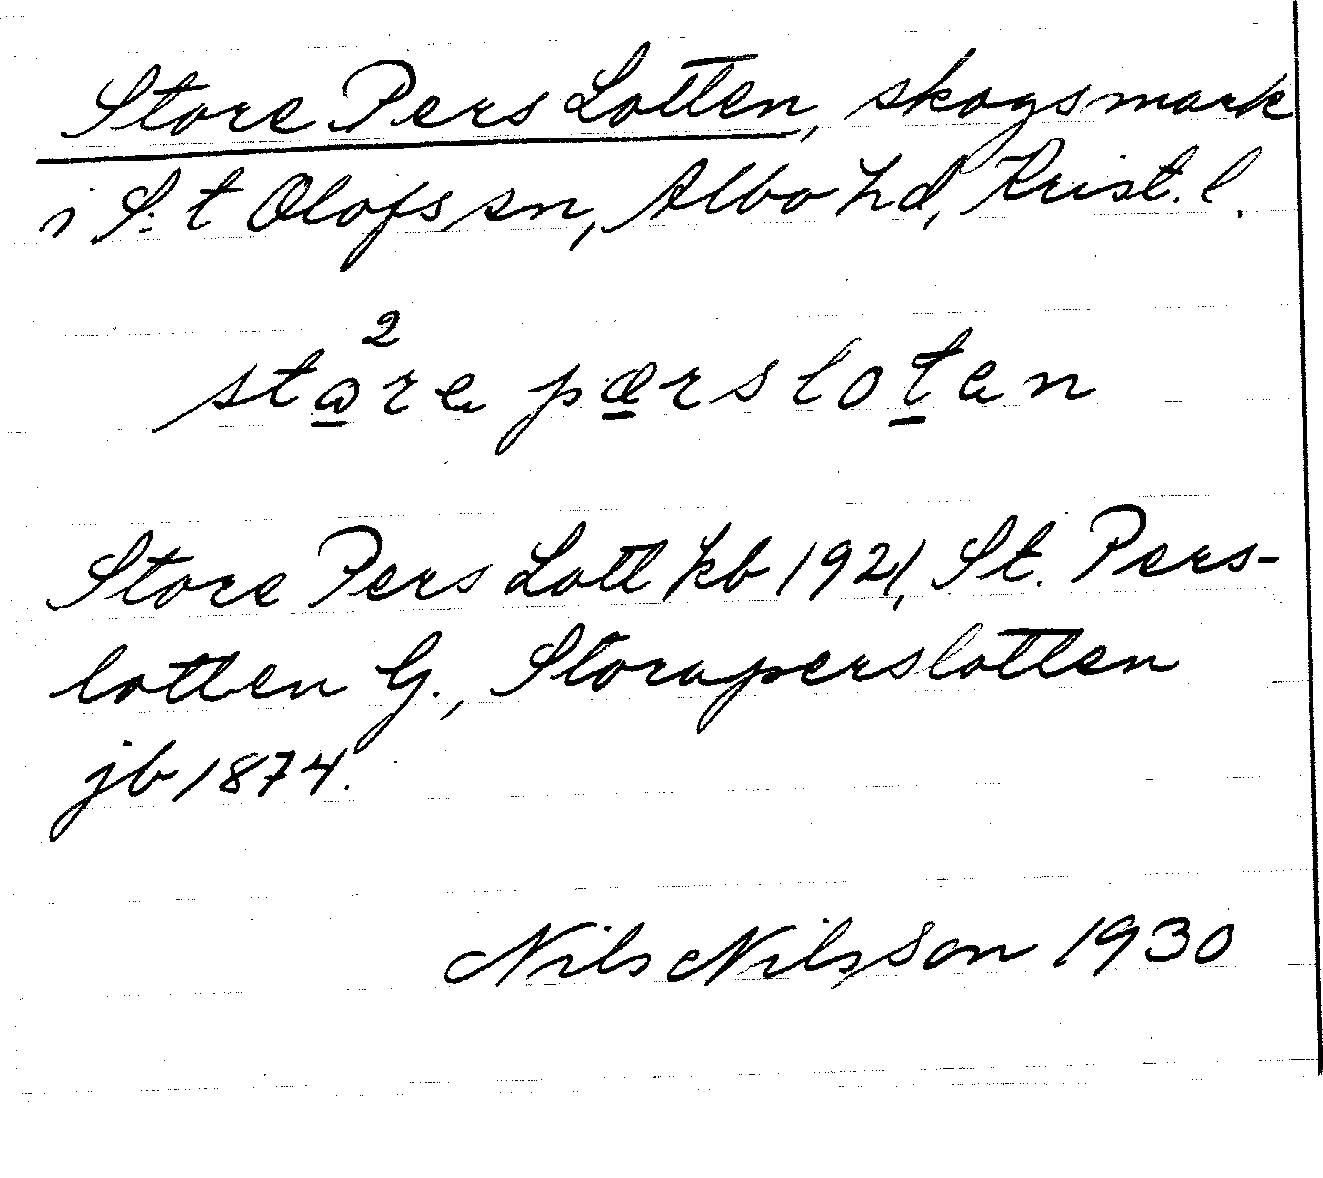 Store Pers Lotten, skogsmark
i S:t Olofs sn, Albo hd, Krist. l.
Store Pers Lott kb 1921, St. Pers-
lotten G., Storaperslotten
jb 1874.
Nils Nilsson 1930